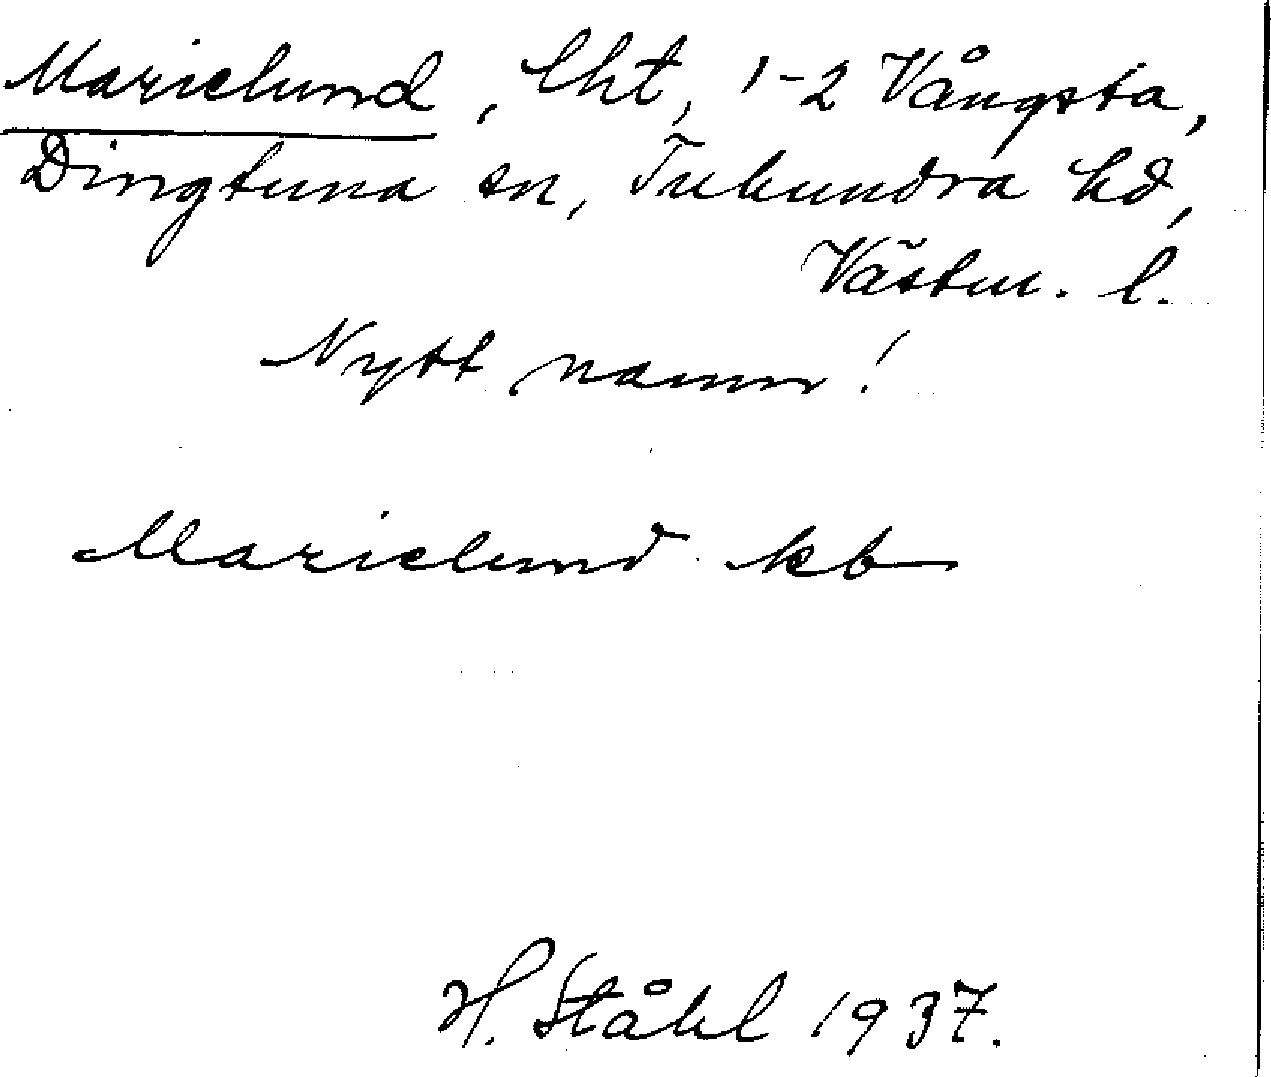 Marielund, lht, 1-2 Vångsta,
Dingtuna sn, Tuhundra hd,
Västm. l.
Nytt namn!
Marielund kb
H. Ståhl 1937.